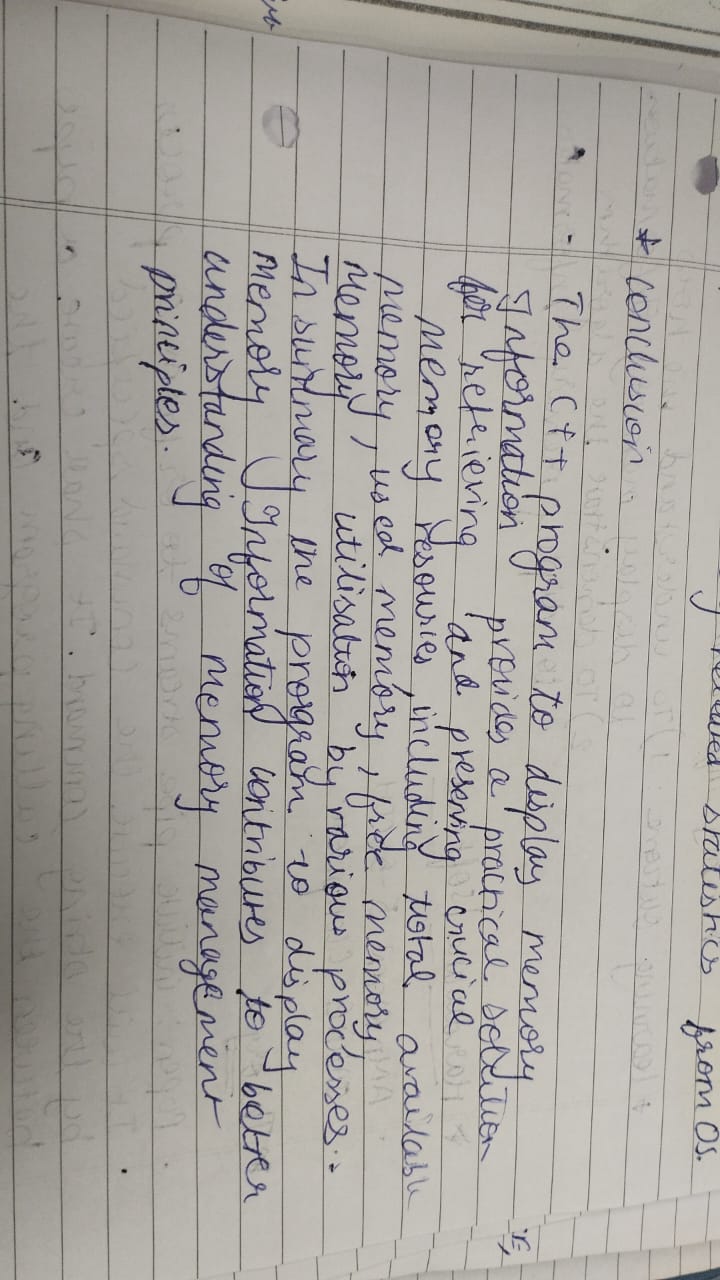 reviewed statistics from OS.
* conclusion
- The C++ program to display memory
Information provides a practical solution
for retrieving and preserving crucial
memory resources, including total available
memory, used memory, free memory,
Memory utilisation by various processes.
In summary the program to display
memory Information contributes to better
understanding of memory management
principles.